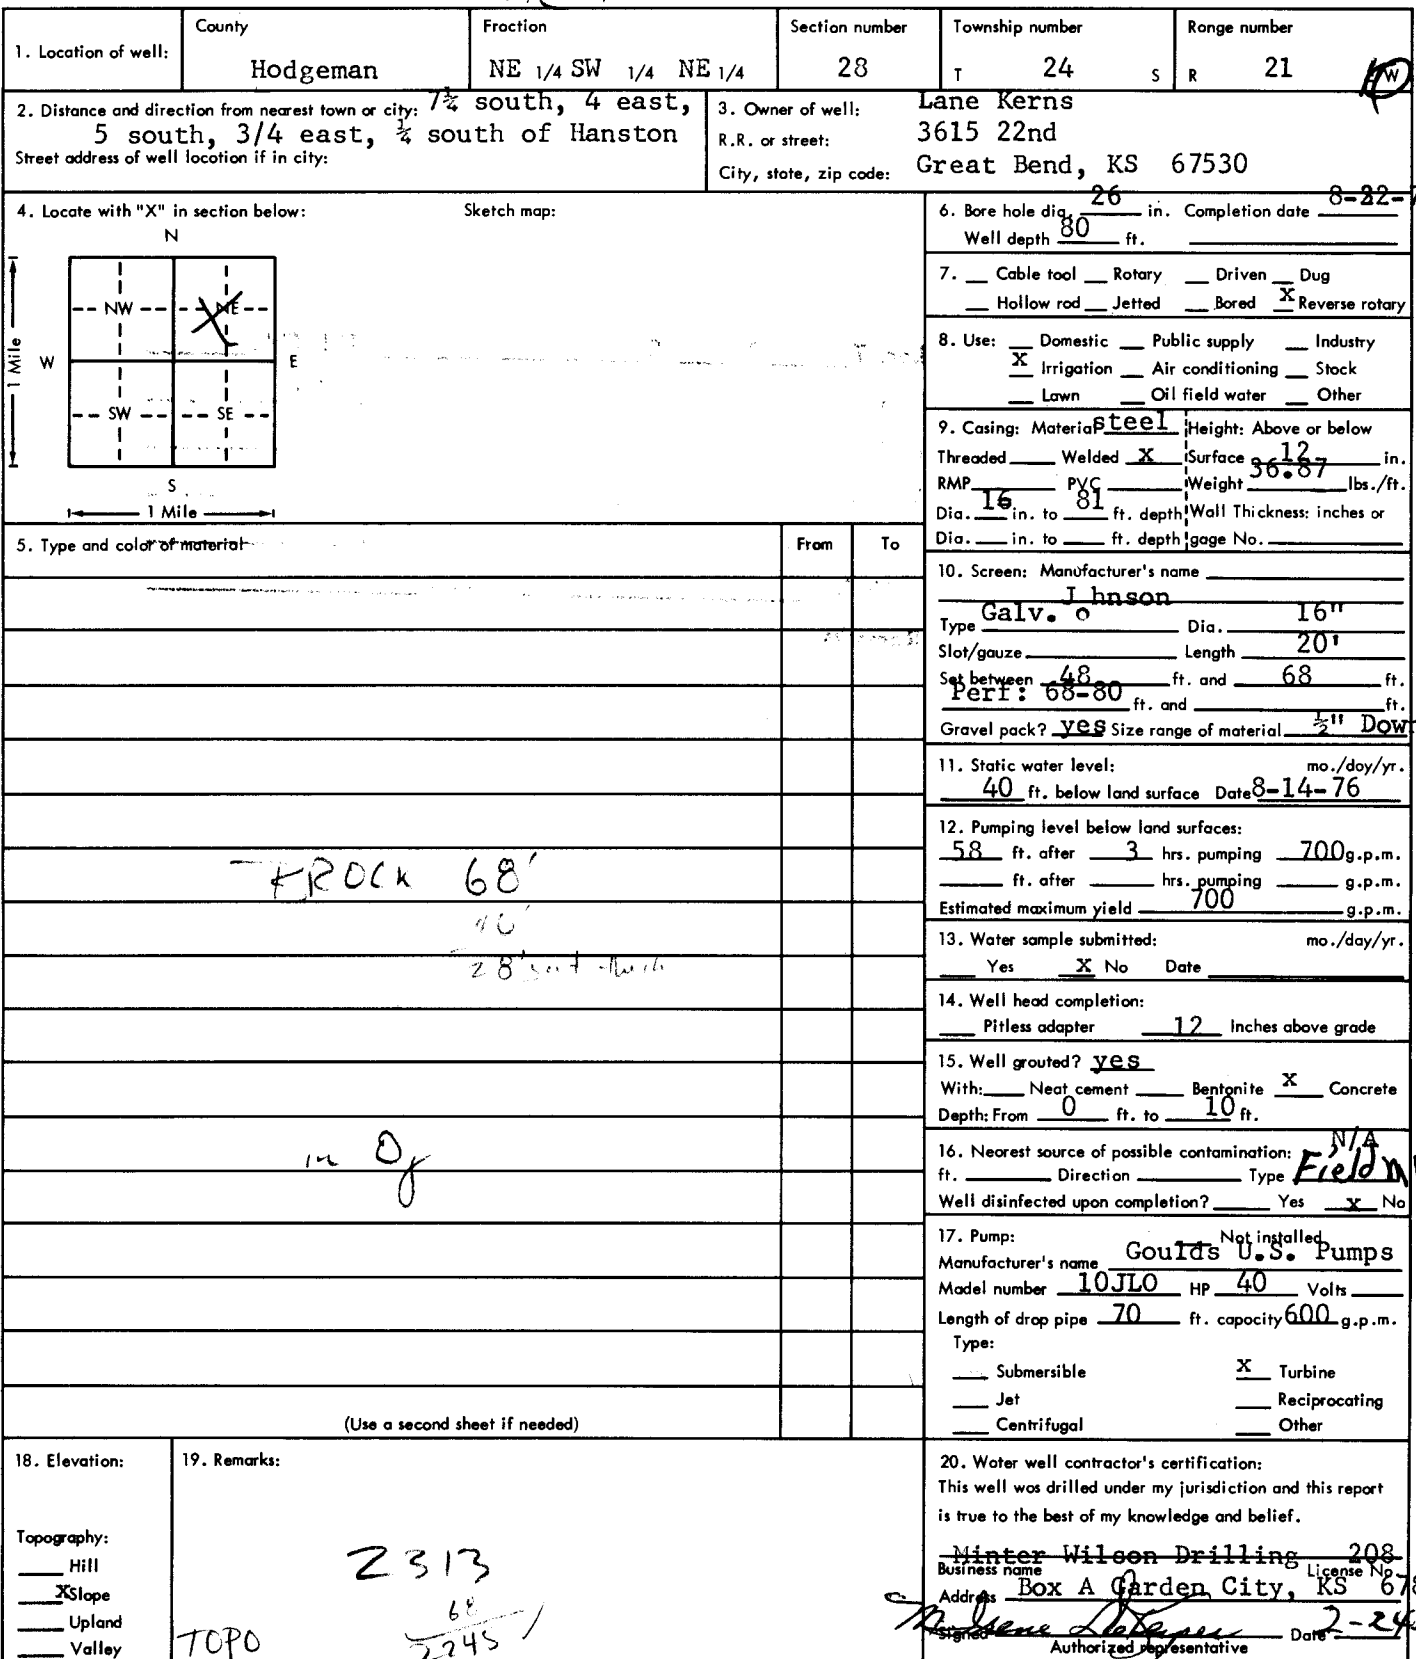 1. Location of well:
County
Hodgeman
Fraction
NE 1/4 SW 1/4 NE 1/4
Section number
28
Township number
T 24 S
Range number
R 21 W
2. Distance and direction from nearest town or city: 7¼ south, 4 east,
5 south, 3/4 east, ¼ south of Hanston
Street address of well location if in city:
3. Owner of well: Lane Kerns
R.R. or street: 3615 22nd
City, state, zip code: Great Bend, KS 67530
4. Locate with "X" in section below:
Sketch map:
N
NW NE
W E
SW SE
S
1 Mile
1 Mile
5. Type and color of material From To
ROCK 68'
40'
28'
in
(Use a second sheet if needed)
6. Bore hole dia. 26 in. Completion date 8-22-7
Well depth 80 ft.
7. Cable tool Rotary Driven Dug
Hollow rod Jetted Bored X Reverse rotary
8. Use: Domestic Public supply Industry
X Irrigation Air conditioning Stock
Lawn Oil field water Other
9. Casing: Material steel Height: Above or below
Threaded Welded X Surface 12 in.
RMP PVC Weight 36.87 lbs./ft.
Dia. 16 in. to 81 ft. depth Wall Thickness: inches or
Dia. in. to ft. depth gage No.
10. Screen: Manufacturer's name
J hnson
Type Galv. o Dia. 16"
Slot/gauze Length 20'
Set between 48 ft. and 68 ft.
Perf: 68-80 ft. and ft.
Gravel pack? yes Size range of material ½" Dow
11. Static water level: mo./day/yr.
40 ft. below land surface Date 8-14-76
12. Pumping level below land surfaces:
58 ft. after 3 hrs. pumping 700 g.p.m.
ft. after hrs. pumping g.p.m.
Estimated maximum yield 700 g.p.m.
13. Water sample submitted: mo./day/yr.
Yes X No Date
14. Well head completion:
Pitless adapter 12 Inches above grade
15. Well grouted? yes
With: Neat cement Bentonite X Concrete
Depth: From 0 ft. to 10 ft.
16. Nearest source of possible contamination: N/A
ft. Direction Type Field
Well disinfected upon completion? Yes X No
17. Pump: Not installed
Manufacturer's name Goulds U.S. Pumps
Model number 10JLO HP 40 Volts
Length of drop pipe 70 ft. capacity 600 g.p.m.
Type:
Submersible X Turbine
Jet Reciprocating
Centrifugal Other
18. Elevation:
Topography:
Hill
X Slope
Upland
Valley
19. Remarks:
2313
68
2245
TOPO
20. Water well contractor's certification:
This well was drilled under my jurisdiction and this report
is true to the best of my knowledge and belief.
Minter Wilson Drilling 208
Business name License No.
Address Box A Garden City, KS 678
Signed Date 2-24
Authorized representative